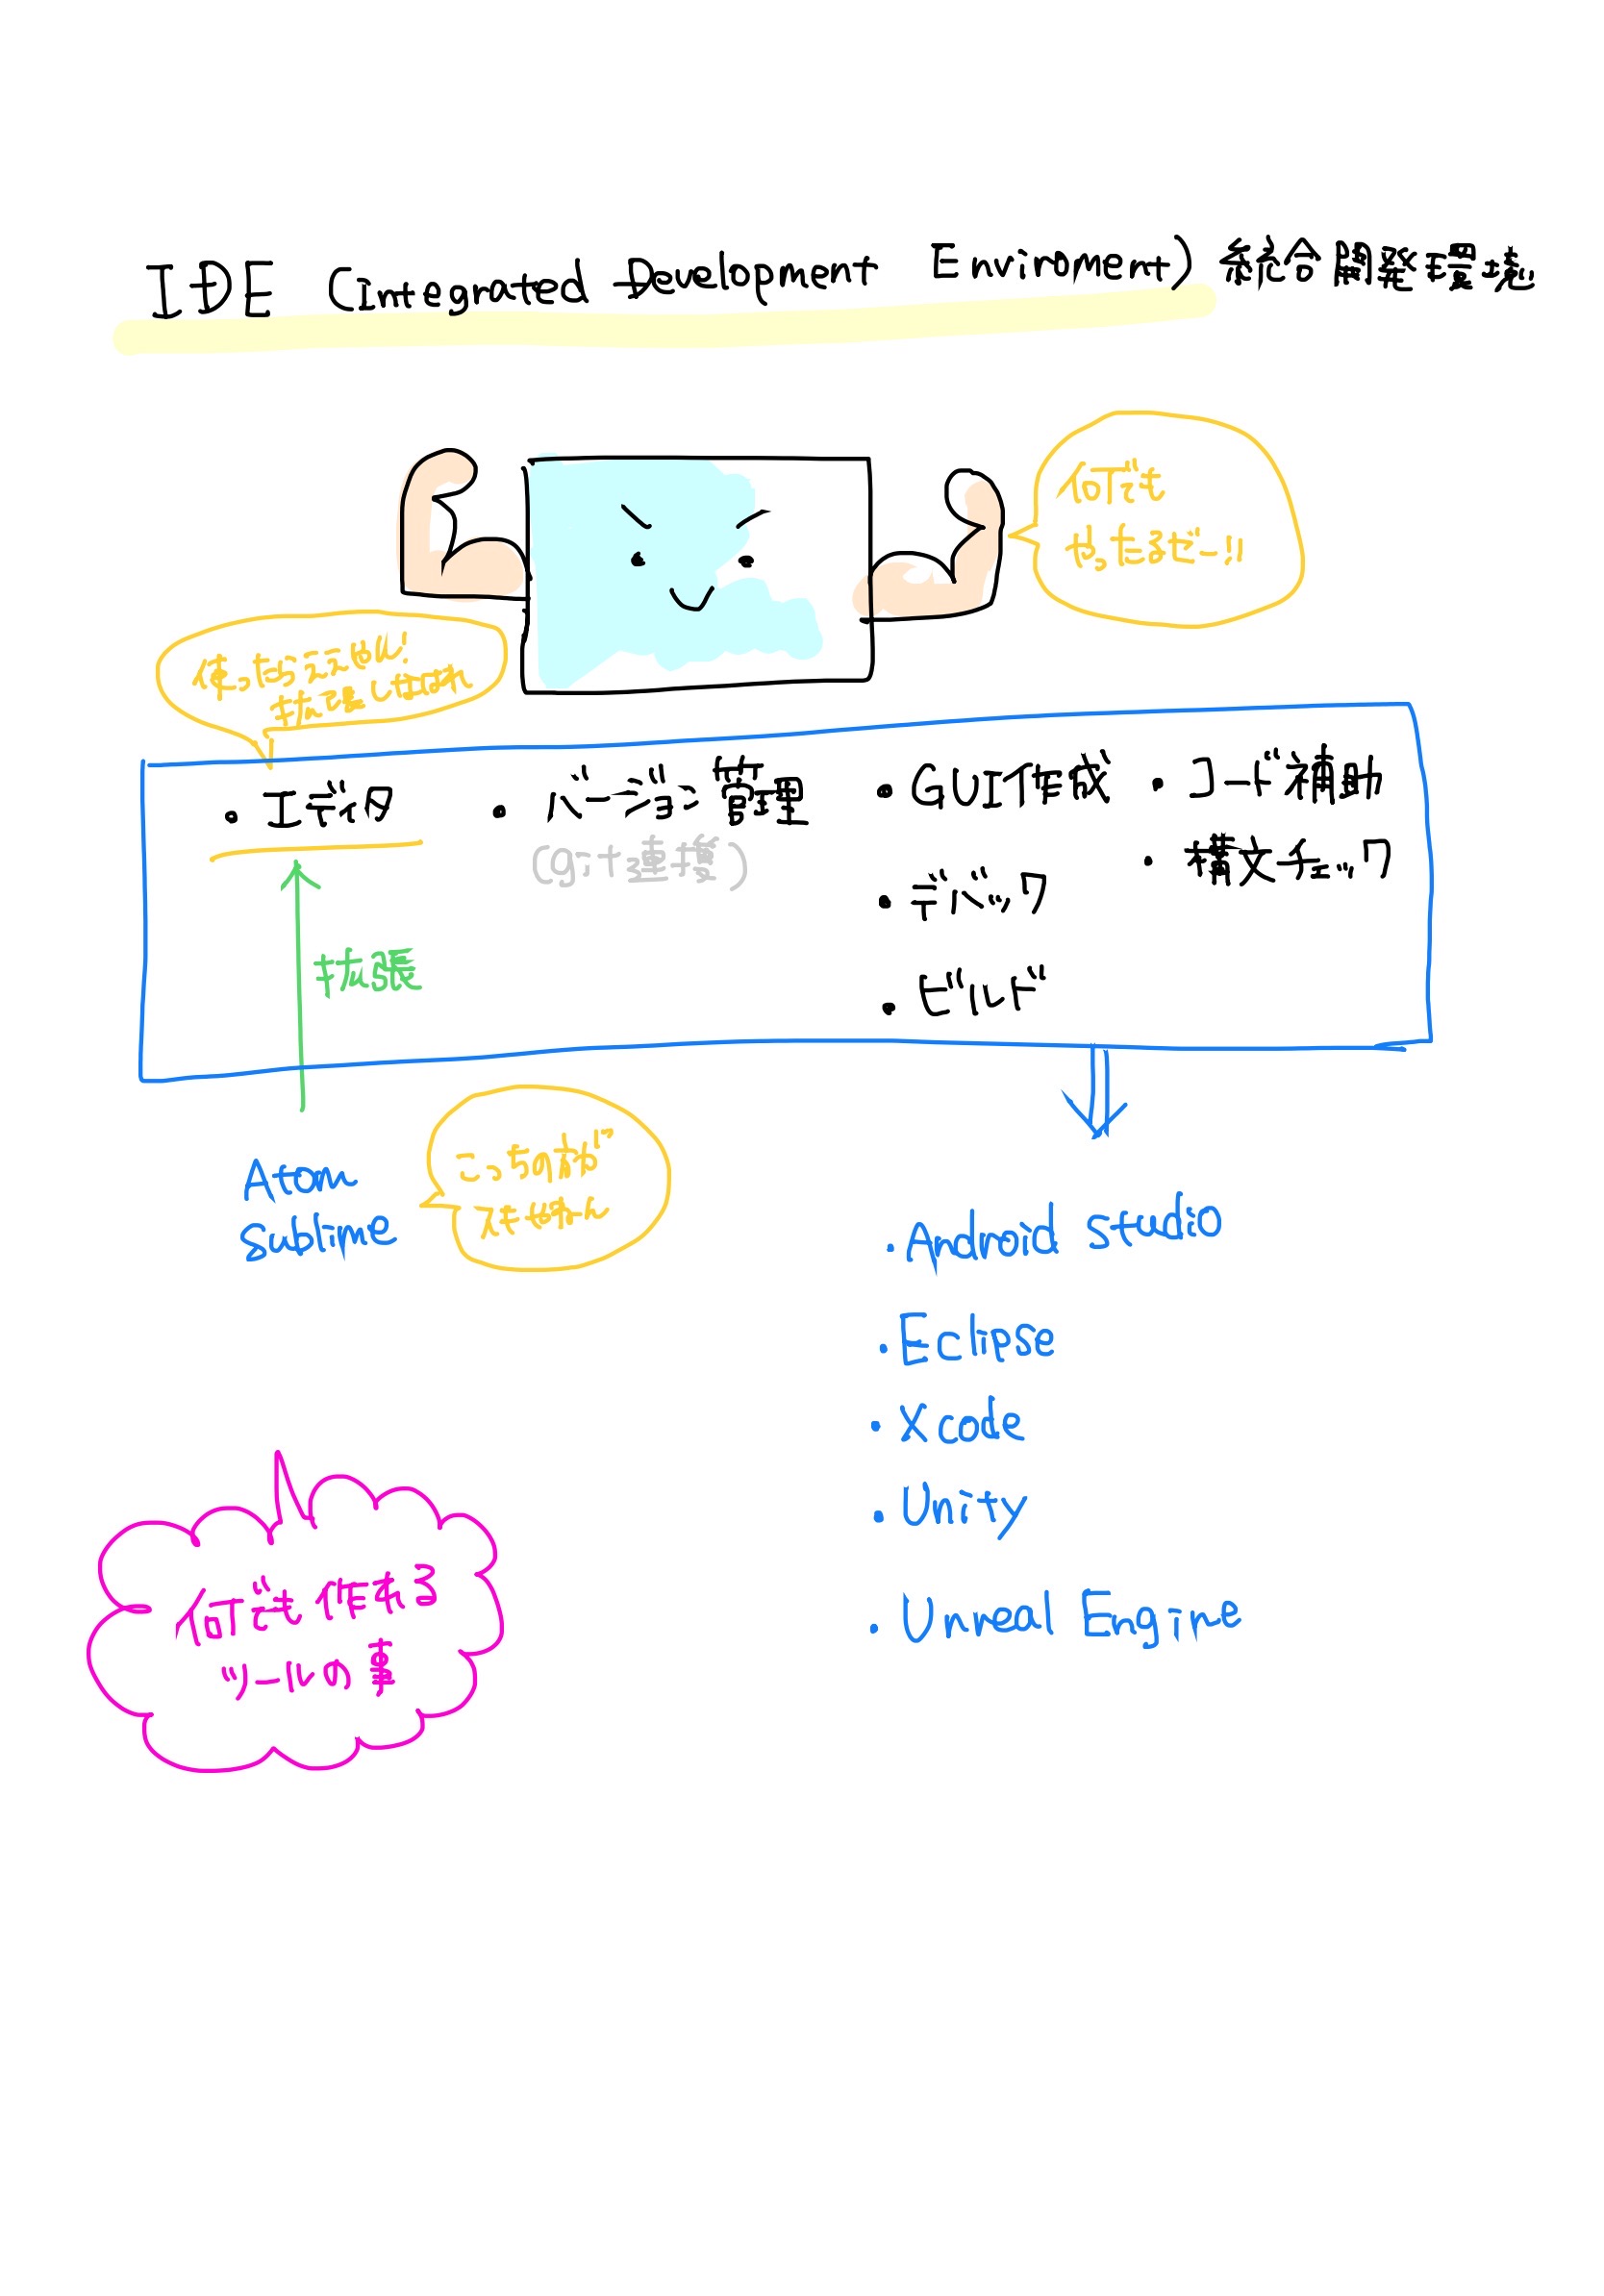 IDE (Integrated Development Enviroment) 統合開発環境
何でも
やったるぜー!!
使ったらええやん!
拡張しまくれ
・エディタ
・バージョン管理
(git連携)
・GUI作成
・コード補助
・構文チェック
・デバック
・ビルド
拡張
Atom
Sublime
こっちの方が
スキやねん
・Android studio
・Eclipse
・Xcode
・Unity
・Unreal Engine
何でも作れる
ツールの事